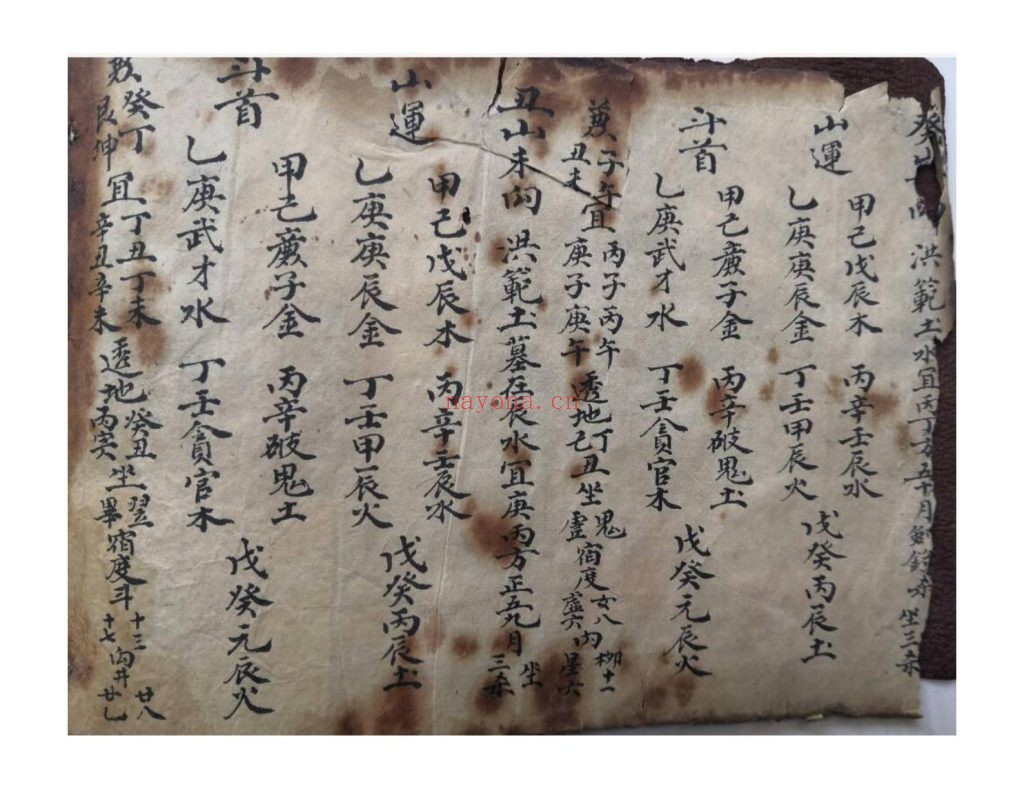 癸山 洪範土水宜丙丁方五十月 坐三杀
山運 甲己戊辰木 丙辛壬辰水
乙庚庚辰金 丁壬甲辰火 戊癸丙辰土
斗首 甲己廉子金 丙辛破鬼土
乙庚武才水 丁壬貪官木 戊癸元辰火
兼子午宜丙子丙午透地丁丑坐鬼宿度女八内柳十一
丑未 庚子庚午 己丑 虚 虚六 星六
丑山未向 洪範土墓在辰水宜庚丙方正五九月坐三杀
甲己戊辰木 丙辛壬辰水
山運 乙庚庚辰金 丁壬甲辰火 戊癸丙辰土
甲己廉子金 丙辛破鬼土
斗首 乙庚武才水 丁壬貪官木 戊癸元辰火
癸丁宜丁丑丁未透地癸丑坐翌宿度斗十三向井廿八
艮坤 辛丑辛未 丙寅 畢 十七 廿七
nayona.cn